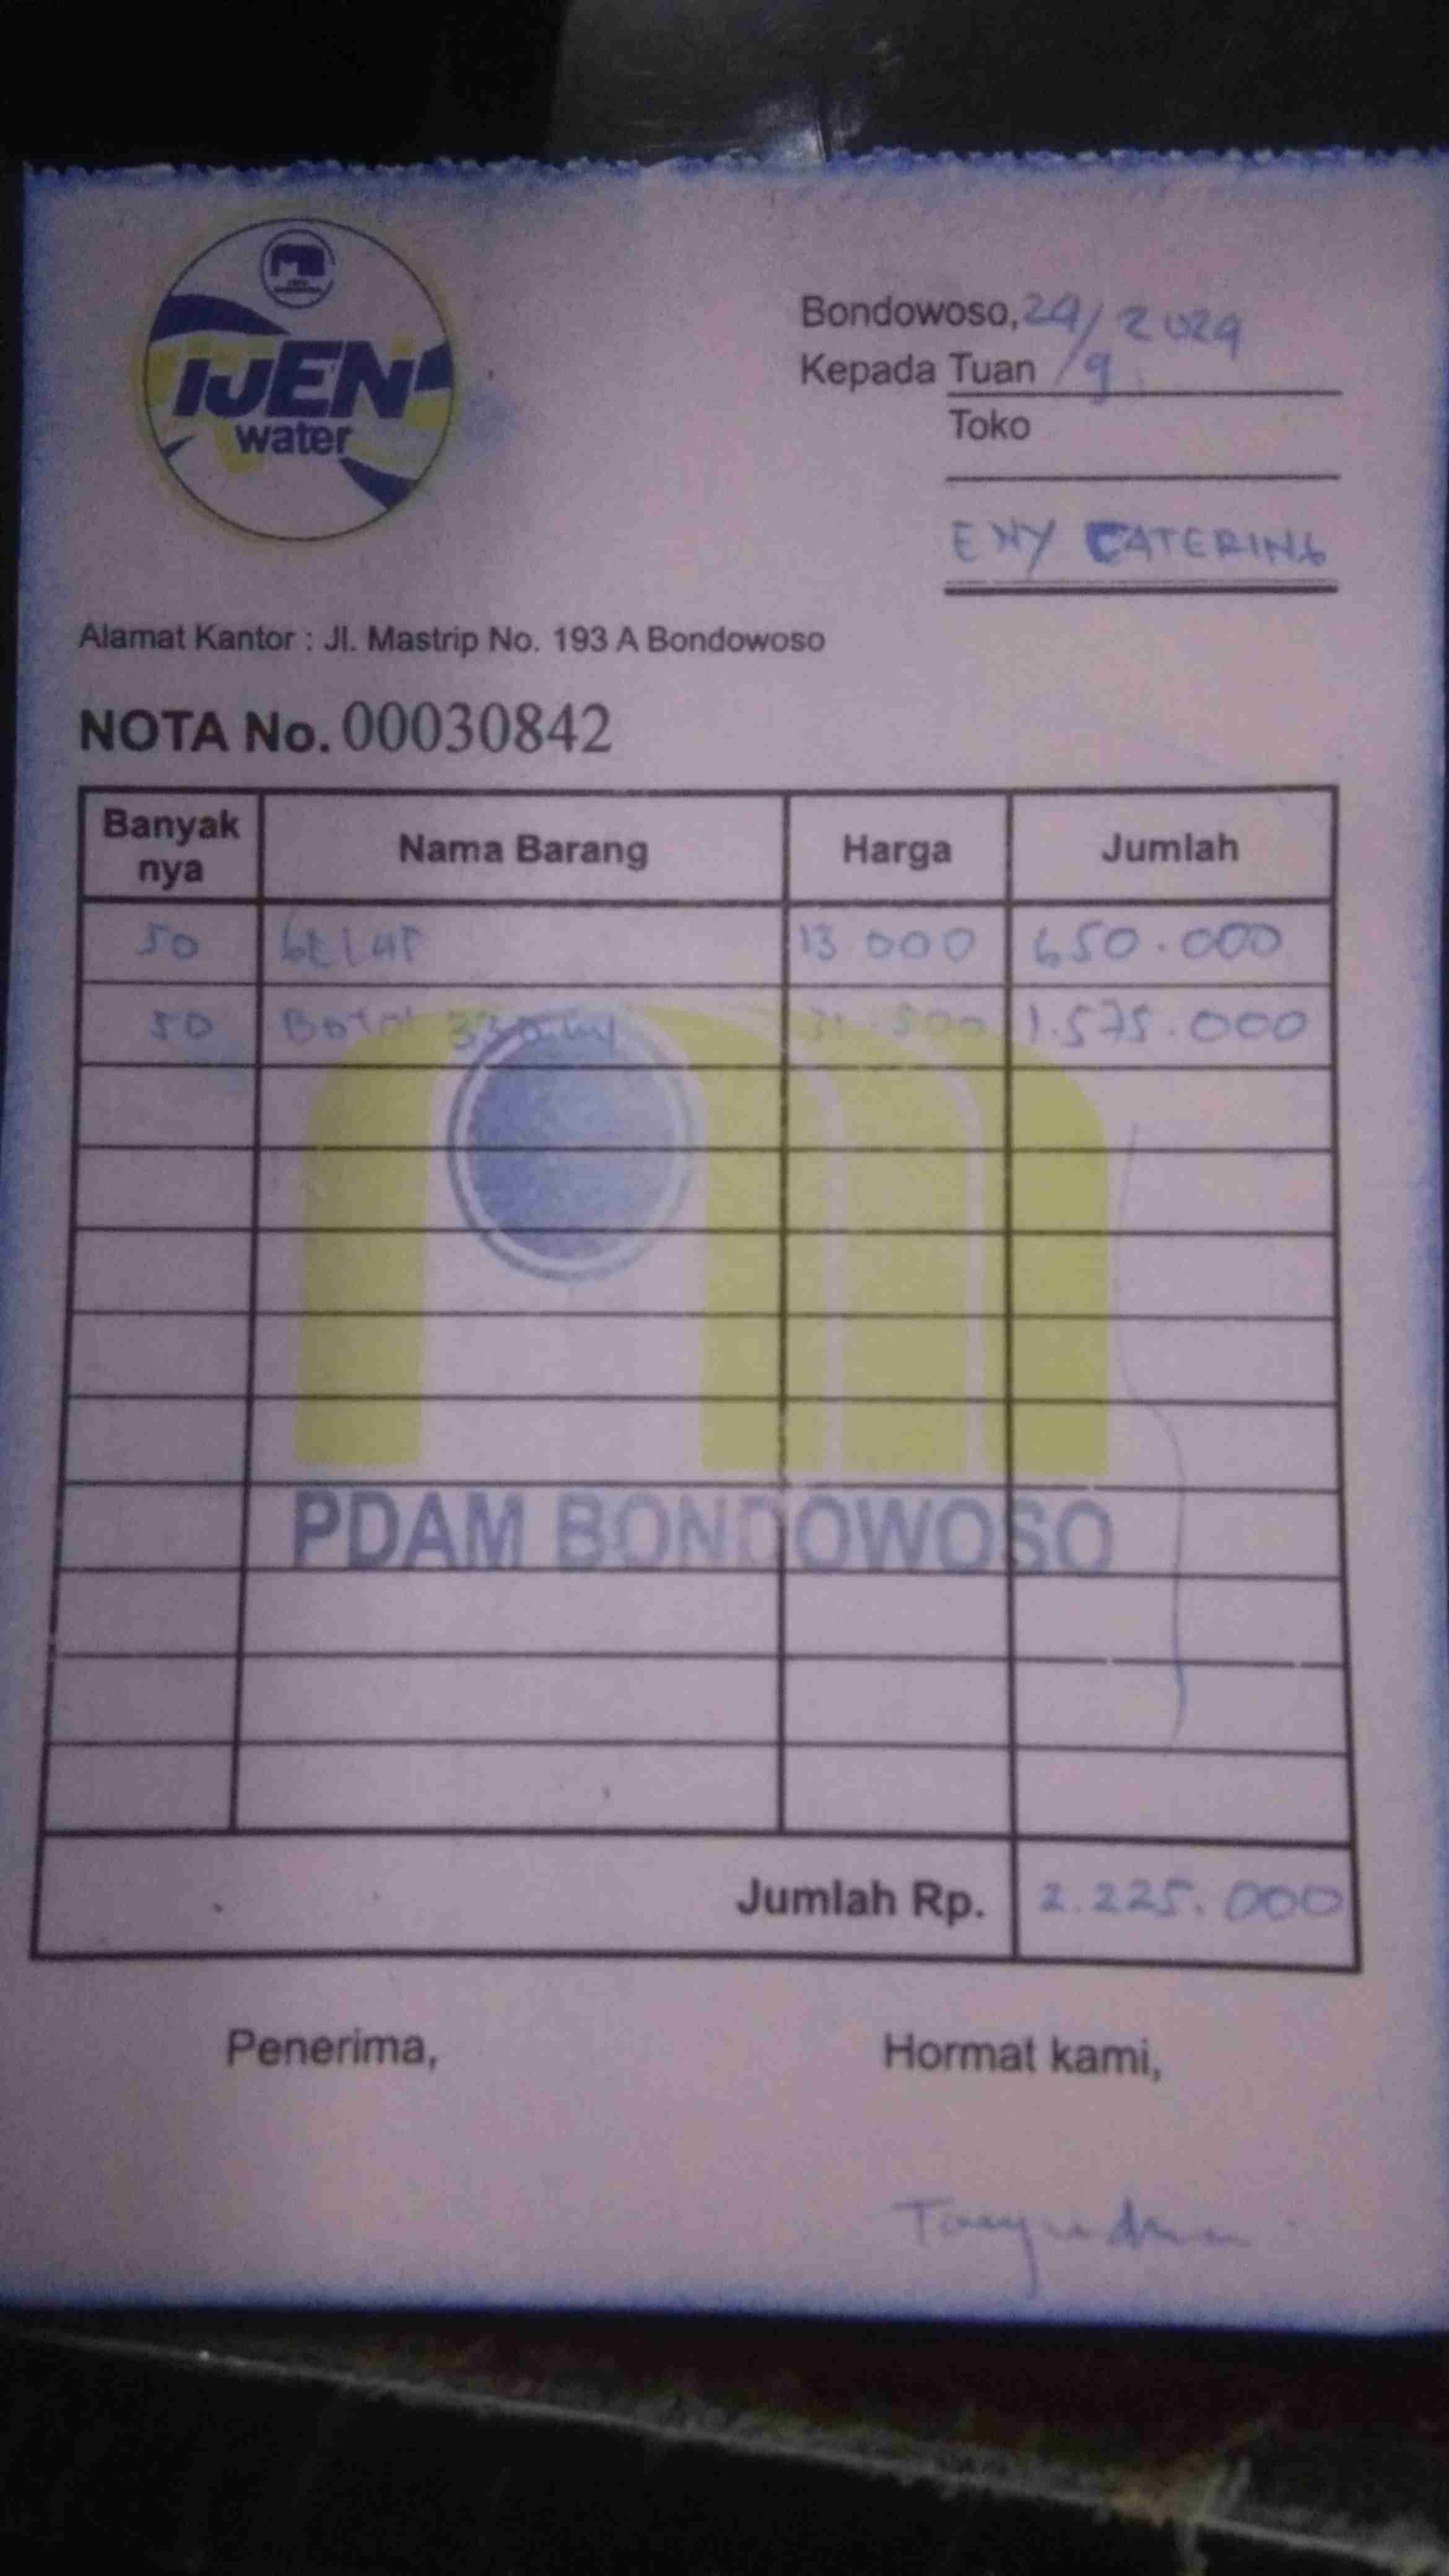 IJEN
water
Bondowoso, 24/9 2024
Kepada Tuan
Toko
ENY CATERING
Alamat Kantor : Jl. Mastrip No. 193 A Bondowoso
NOTA No. 00030842
Banyak nya Nama Barang Harga Jumlah
50 GELAS 13.000 650.000
50 Botol 330 ml 31.500 1.575.000
PDAM BONDOWOSO
Jumlah Rp. 2.225.000
Penerima, Hormat kami,